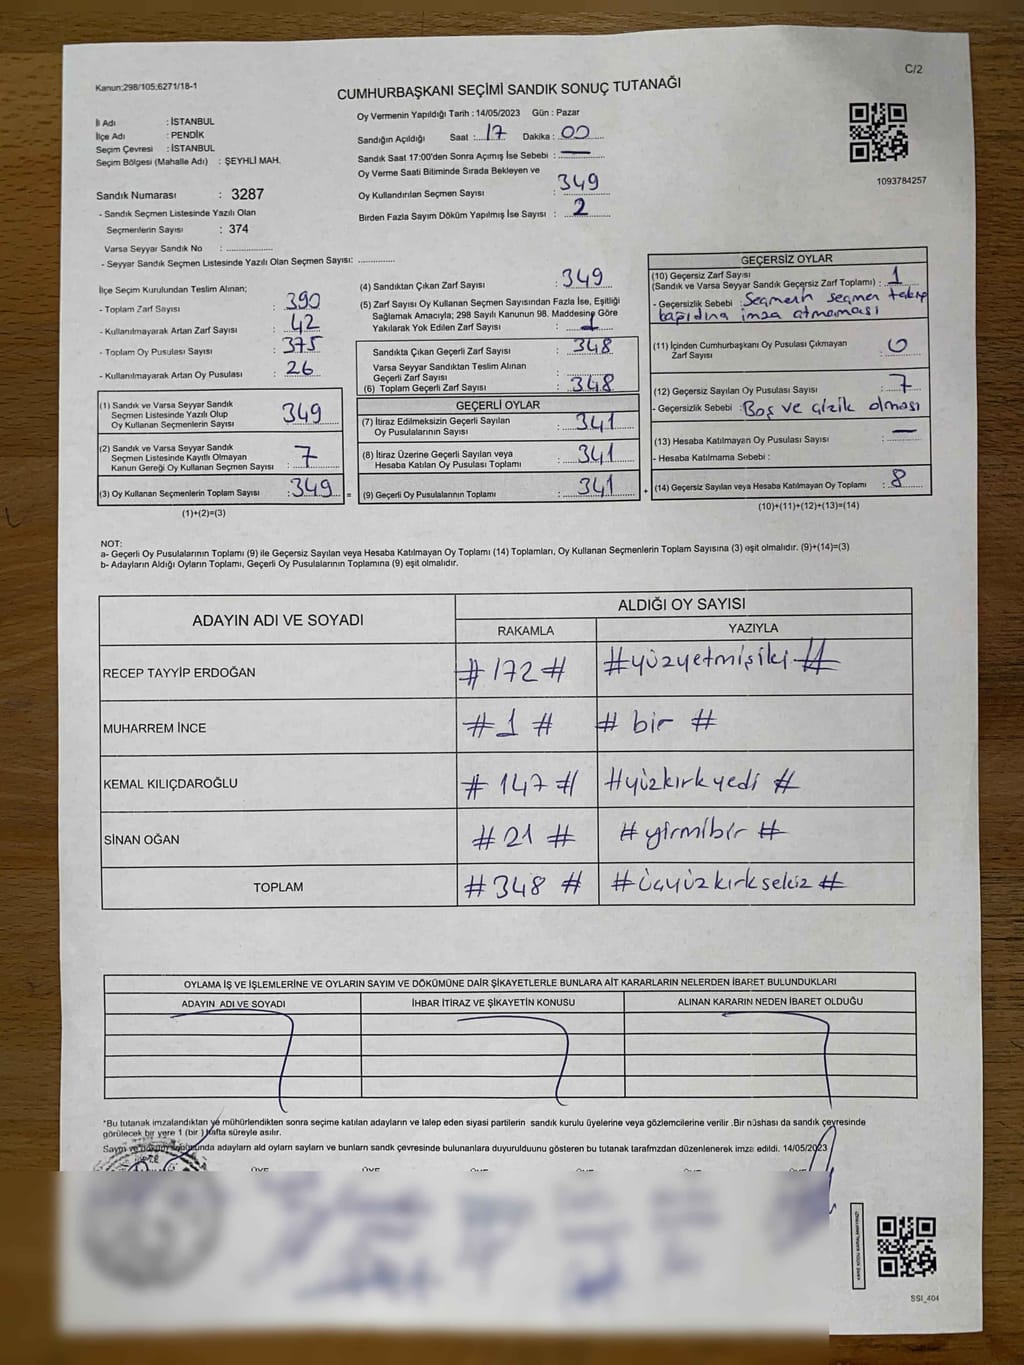 C/2
Kanun:298/105;6271/18-1
CUMHURBAŞKANI SEÇİMİ SANDIK SONUÇ TUTANAĞI
İl Adı : İSTANBUL
İlçe Adı : PENDİK
Seçim Çevresi : İSTANBUL
Seçim Bölgesi (Mahalle Adı) : ŞEYHLİ MAH.
Oy Vermenin Yapıldığı Tarih : 14/05/2023 Gün : Pazar
Sandığın Açıldığı Saat : 17 Dakika : 00
Sandık Saat 17:00'den Sonra Açımış İse Sebebi : —
Oy Verme Saati Bitiminde Sırada Bekleyen ve
Oy Kullandırılan Seçmen Sayısı : 349
Birden Fazla Sayım Döküm Yapılmış İse Sayısı : 2
1093784257
Sandık Numarası : 3287
- Sandık Seçmen Listesinde Yazılı Olan
Seçmenlerin Sayısı : 374
Varsa Seyyar Sandık No : ..............
- Seyyar Sandık Seçmen Listesinde Yazılı Olan Seçmen Sayısı: ............
İlçe Seçim Kurulundan Teslim Alınan;
- Toplam Zarf Sayısı : 390
- Kullanılmayarak Artan Zarf Sayısı : 42
- Toplam Oy Pusulası Sayısı : 375
- Kullanılmayarak Artan Oy Pusulası : 26
(1) Sandık ve Varsa Seyyar Sandık
Seçmen Listesinde Yazılı Olup
Oy Kullanan Seçmenlerin Sayısı : 349
(2) Sandık ve Varsa Seyyar Sandık
Seçmen Listesinde Kayıtlı Olmayan
Kanun Gereği Oy Kullanan Seçmen Sayısı : 7
(3) Oy Kullanan Seçmenlerin Toplam Sayısı : 349 =
(1)+(2)=(3)
(4) Sandıktan Çıkan Zarf Sayısı : 349
(5) Zarf Sayısı Oy Kullanan Seçmen Sayısından Fazla İse, Eşitliği
Sağlamak Amacıyla; 298 Sayılı Kanunun 98. Maddesine Göre
Yakılarak Yok Edilen Zarf Sayısı : 1
Sandıkta Çıkan Geçerli Zarf Sayısı : 348
Varsa Seyyar Sandıktan Teslim Alınan
Geçerli Zarf Sayısı :
(6) Toplam Geçerli Zarf Sayısı : 348
GEÇERLİ OYLAR
(7) İtiraz Edilmeksizin Geçerli Sayılan
Oy Pusulalarının Sayısı : 341
(8) İtiraz Üzerine Geçerli Sayılan veya
Hesaba Katılan Oy Pusulası Toplamı : 341
(9) Geçerli Oy Pusulalarının Toplamı : 341 +
GEÇERSİZ OYLAR
(10) Geçersiz Zarf Sayısı
(Sandık ve Varsa Seyyar Sandık Geçersiz Zarf Toplamı) : 1
- Geçersizlik Sebebi : Seçmenin seçmen
kapıdına imza atmaması
(11) İçinden Cumhurbaşkanı Oy Pusulası Çıkmayan
Zarf Sayısı : 0
(12) Geçersiz Sayılan Oy Pusulası Sayısı : 7
- Geçersizlik Sebebi : Boş ve çizik olması
(13) Hesaba Katılmayan Oy Pusulası Sayısı : —
- Hesaba Katılmama Sebebi :
(14) Geçersiz Sayılan veya Hesaba Katılmayan Oy Toplamı : 8
(10)+(11)+(12)+(13)=(14)
NOT:
a- Geçerli Oy Pusulalarının Toplamı (9) ile Geçersiz Sayılan veya Hesaba Katılmayan Oy Toplamı (14) Toplamları, Oy Kullanan Seçmenlerin Toplam Sayısına (3) eşit olmalıdır. (9)+(14)=(3)
b- Adayların Aldığı Oyların Toplamı, Geçerli Oy Pusulalarının Toplamına (9) eşit olmalıdır.
ADAYIN ADI VE SOYADI ALDIĞI OY SAYISI
RAKAMLA YAZIYLA
RECEP TAYYİP ERDOĞAN # 172 # # yüzyetmişiki #
MUHARREM İNCE # 1 # # bir #
KEMAL KILIÇDAROĞLU # 147 # # yüzkırkyedi #
SİNAN OĞAN # 21 # # yirmibir #
TOPLAM # 348 # # üçyüzkırksekiz #
OYLAMA İŞ VE İŞLEMLERİNE VE OYLARIN SAYIM VE DÖKÜMÜNE DAİR ŞİKAYETLERLE BUNLARA AİT KARARLARIN NELERDEN İBARET BULUNDUKLARI
ADAYIN ADI VE SOYADI İHBAR İTİRAZ VE ŞİKAYETİN KONUSU ALINAN KARARIN NEDEN İBARET OLDUĞU
*Bu tutanak imzalandıktan ve mühürlendikten sonra seçime katılan adayların ve talep eden siyasi partilerin sandık kurulu üyelerine veya gözlemcilerine verilir .Bir nüshası da sandık çevresinde
görülecek bir yere 1 (bir ) hafta süreyle asılır.
Sayım ve adayların ald oyların sayların ve bunların sandık çevresinde bulunanlara duyurulduunu gösteren bu tutanak tarafmzdan düzenlenerek imza edildi. 14/05/2023
SSI_404